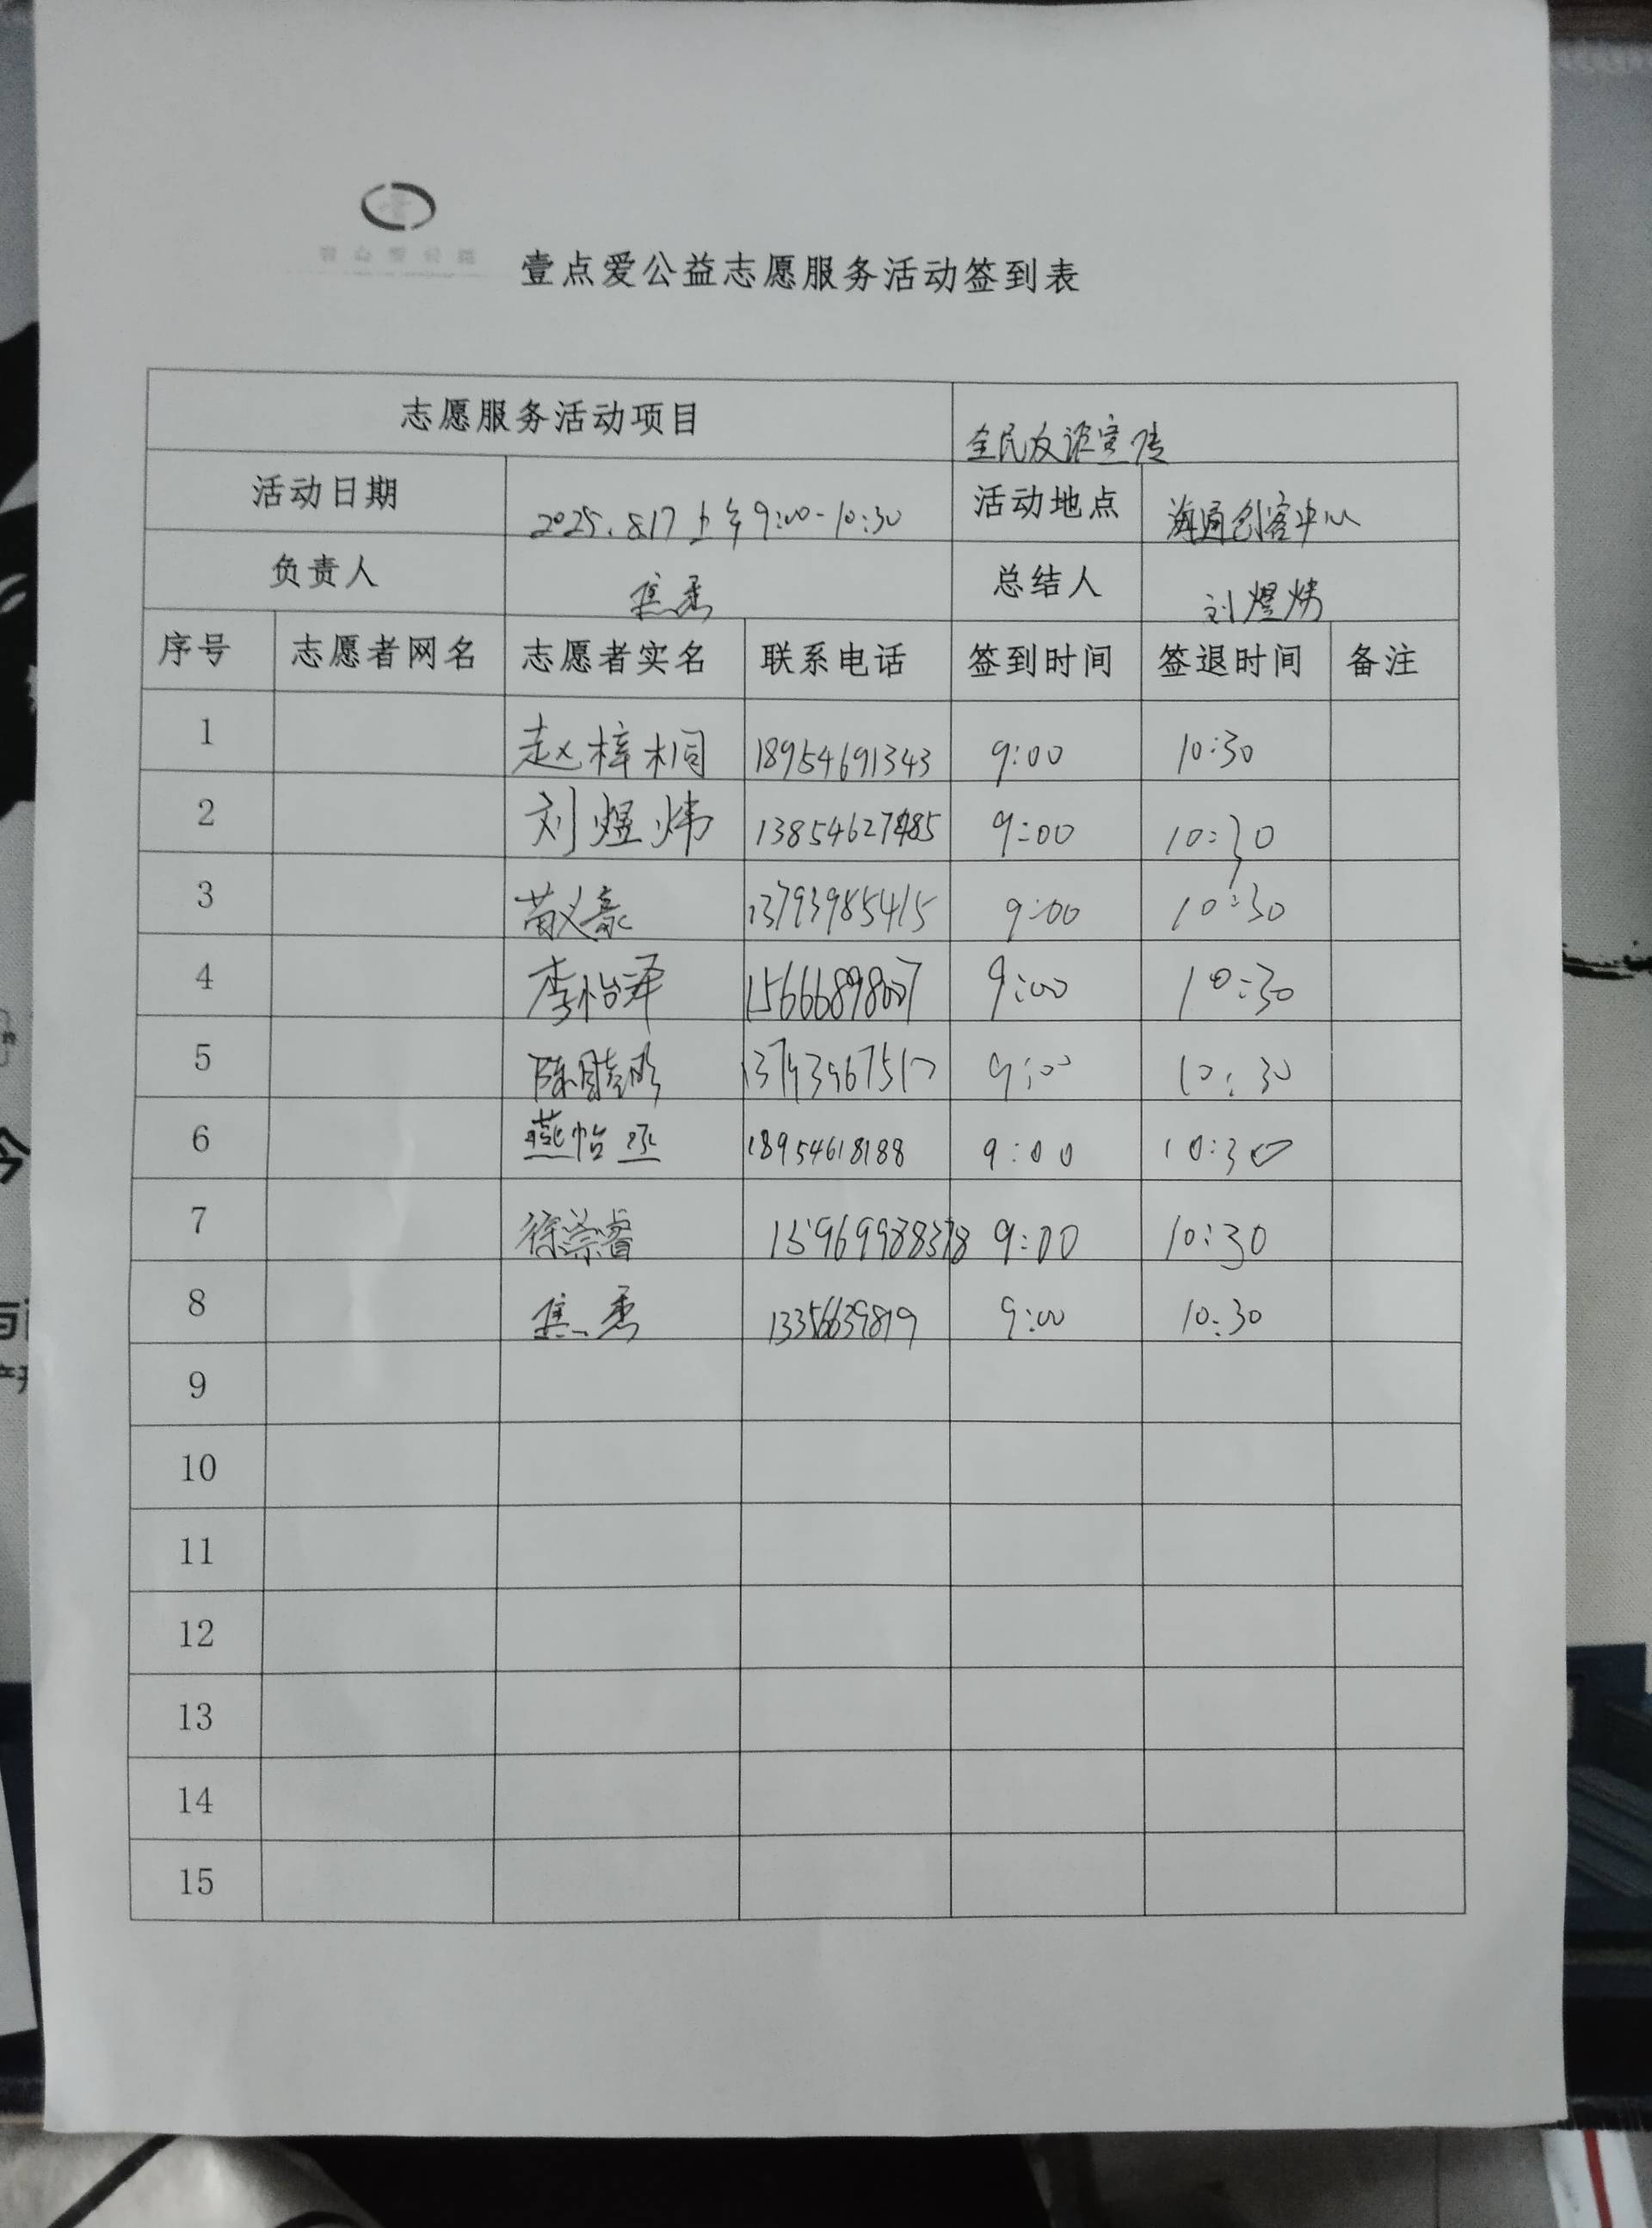 壹点爱公益志愿服务活动签到表
志愿服务活动项目 全民反诈宣传
活动日期 2025.8.17上午9:00-10:30 活动地点 海通创客中心
负责人 焦秀 总结人 刘煜炜
序号 志愿者网名 志愿者实名 联系电话 签到时间 签退时间 备注
1 赵梓桐 18954691343 9:00 10:30
2 刘煜炜 13854627485 9:00 10:30
3 苗义豪 13793985415 9:00 10:30
4 李怡泽 15666898007 9:00 10:30
5 9:00 10:30
6 燕怡丞 18954618188 9:00 10:30
7 徐崇睿 9:00 10:30
8 焦秀 13356639819 9:00 10:30
9
10
11
12
13
14
15